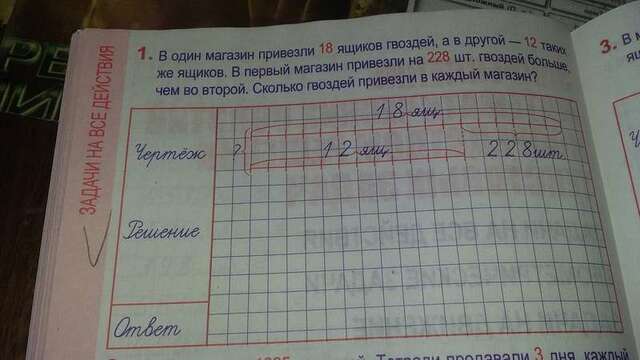 ЗАДАЧИ НА ВСЕ ДЕЙСТВИЯ
1. В один магазин привезли 18 ящиков гвоздей, а в другой — 12 таких
же ящиков. В первый магазин привезли на 228 шт. гвоздей больше,
чем во второй. Сколько гвоздей привезли в каждый магазин?
18 ящ.
Чертёж ? 12 ящ. 228 шт.
Решение
Ответ
3. В